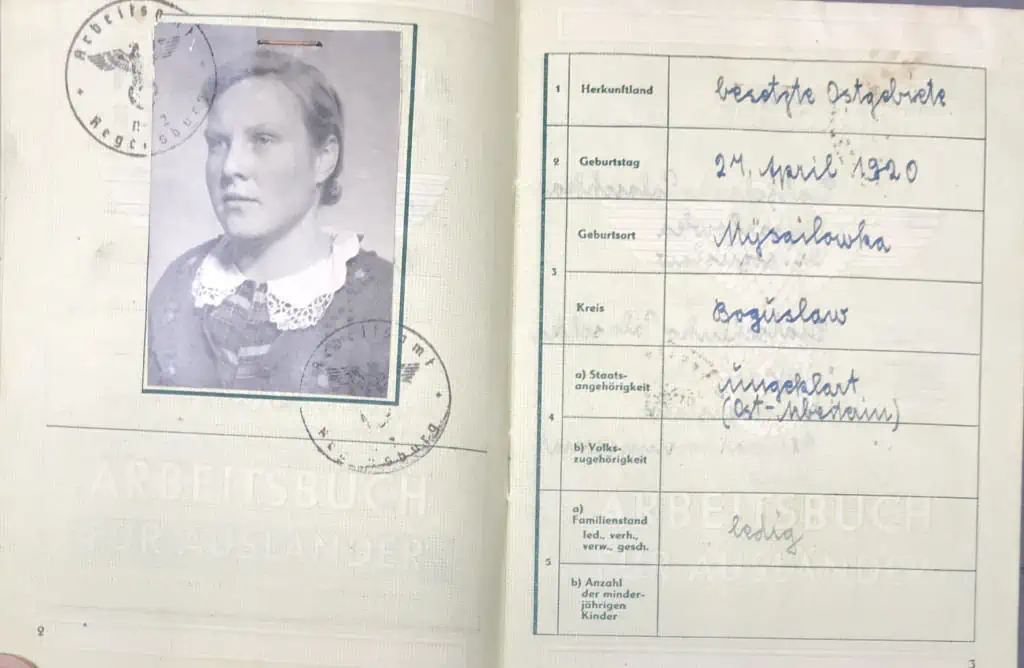 Arbeitsamt
Regensburg
Arbeitsamt
Regensburg
ARBEITSBUCH
FÜR AUSLÄNDER
2
1 Herkunftland besetzte Ostgebiete
2 Geburtstag 27. April 1920
3 Geburtsort Mÿsailowka
Kreis Boguslaw
4 a) Staats-
angehörigkeit ungeklärt
(Ost-
b) Volks-
zugehörigkeit
5 a)
Familienstand ledig
led., verh.,
verw., gesch.
b) Anzahl
der minder-
jährigen
Kinder
ARBEITSBUCH
FÜR AUSLÄNDER
3